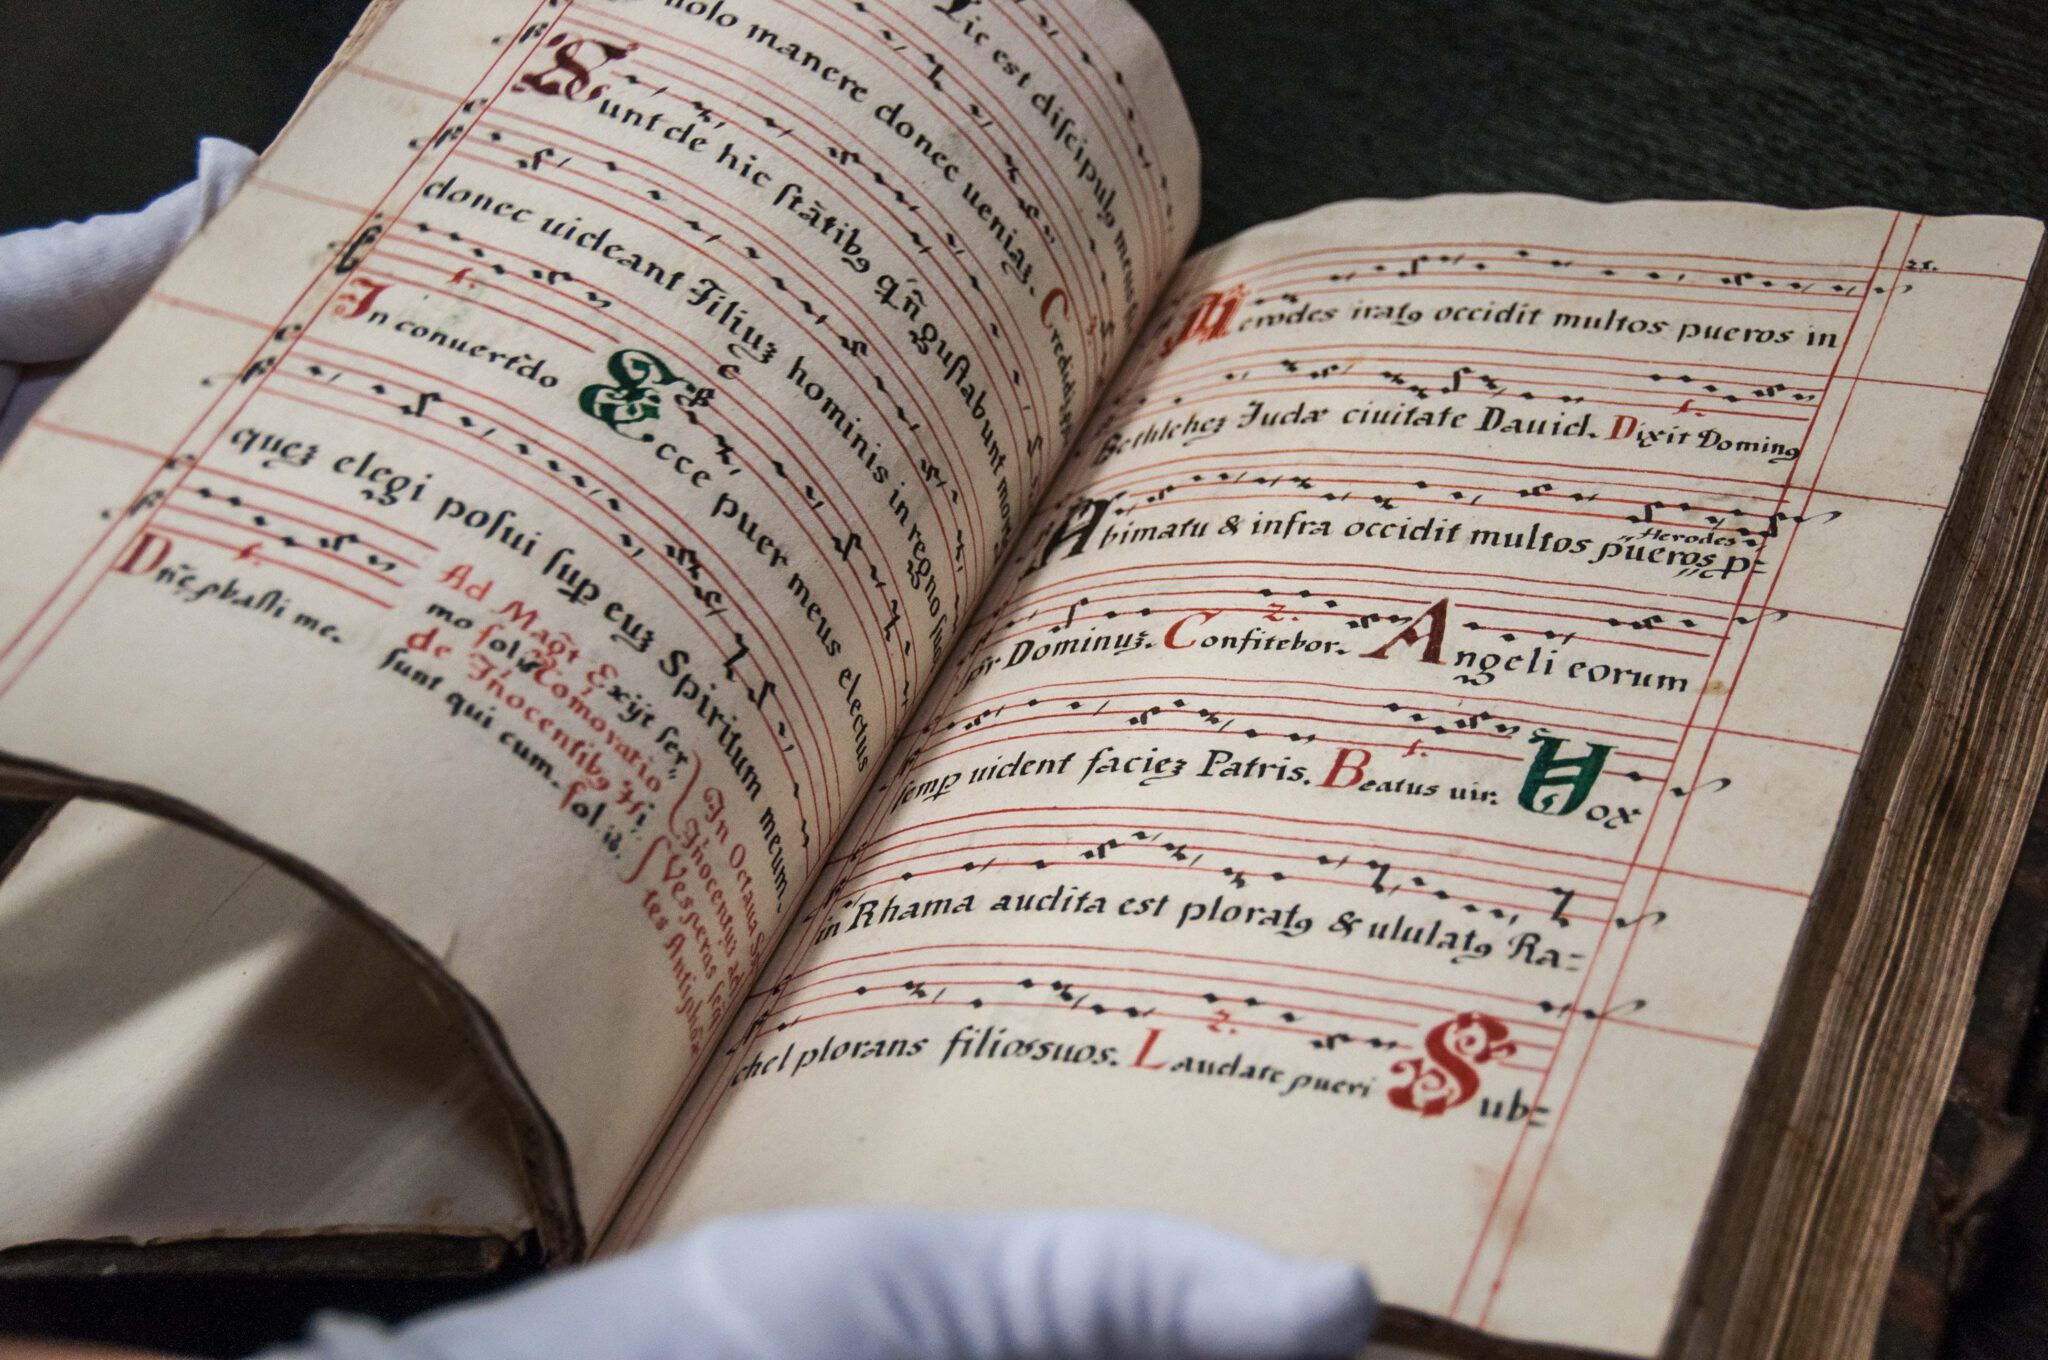 Hic est discipulꝯ meus
nolo manere donec ueniaꝫ. Credidi
Sunt de hic ſtātibꝯ qūi guſtabunt mortē
donec uideant Filiuꝫ hominis in regno ſuo
In conuertēdo Ecce puer meus electus
queꝫ elegi poſui ſup̱ euꝫ Spiritum meum.
Dñe p̱baſti me.
Ad Magt̄ Exijt ſer-
mo fol.
de Iñocentibꝯ Hi
ſunt qui cum. fol. 18.
In Octaua S
Iñocentiuꝫ ad
Veſperas
tes Antiphōa
25.
Herodes iratꝯ occidit multos pueros in
Bethleheꝫ Iudæ ciuitate Dauid. Dixit Dominꝯ
A bimatu & infra occidit multos pueros p̱-
Herodes
Dominuꝫ. Confitebor. Angeli eorum
ſemp̱ uident facieꝫ Patris. Beatus uir. Vox
in Rhama audita est ploratꝯ & ululatꝯ Ra-
chel plorans filios suos. Laudate pueri Sub-